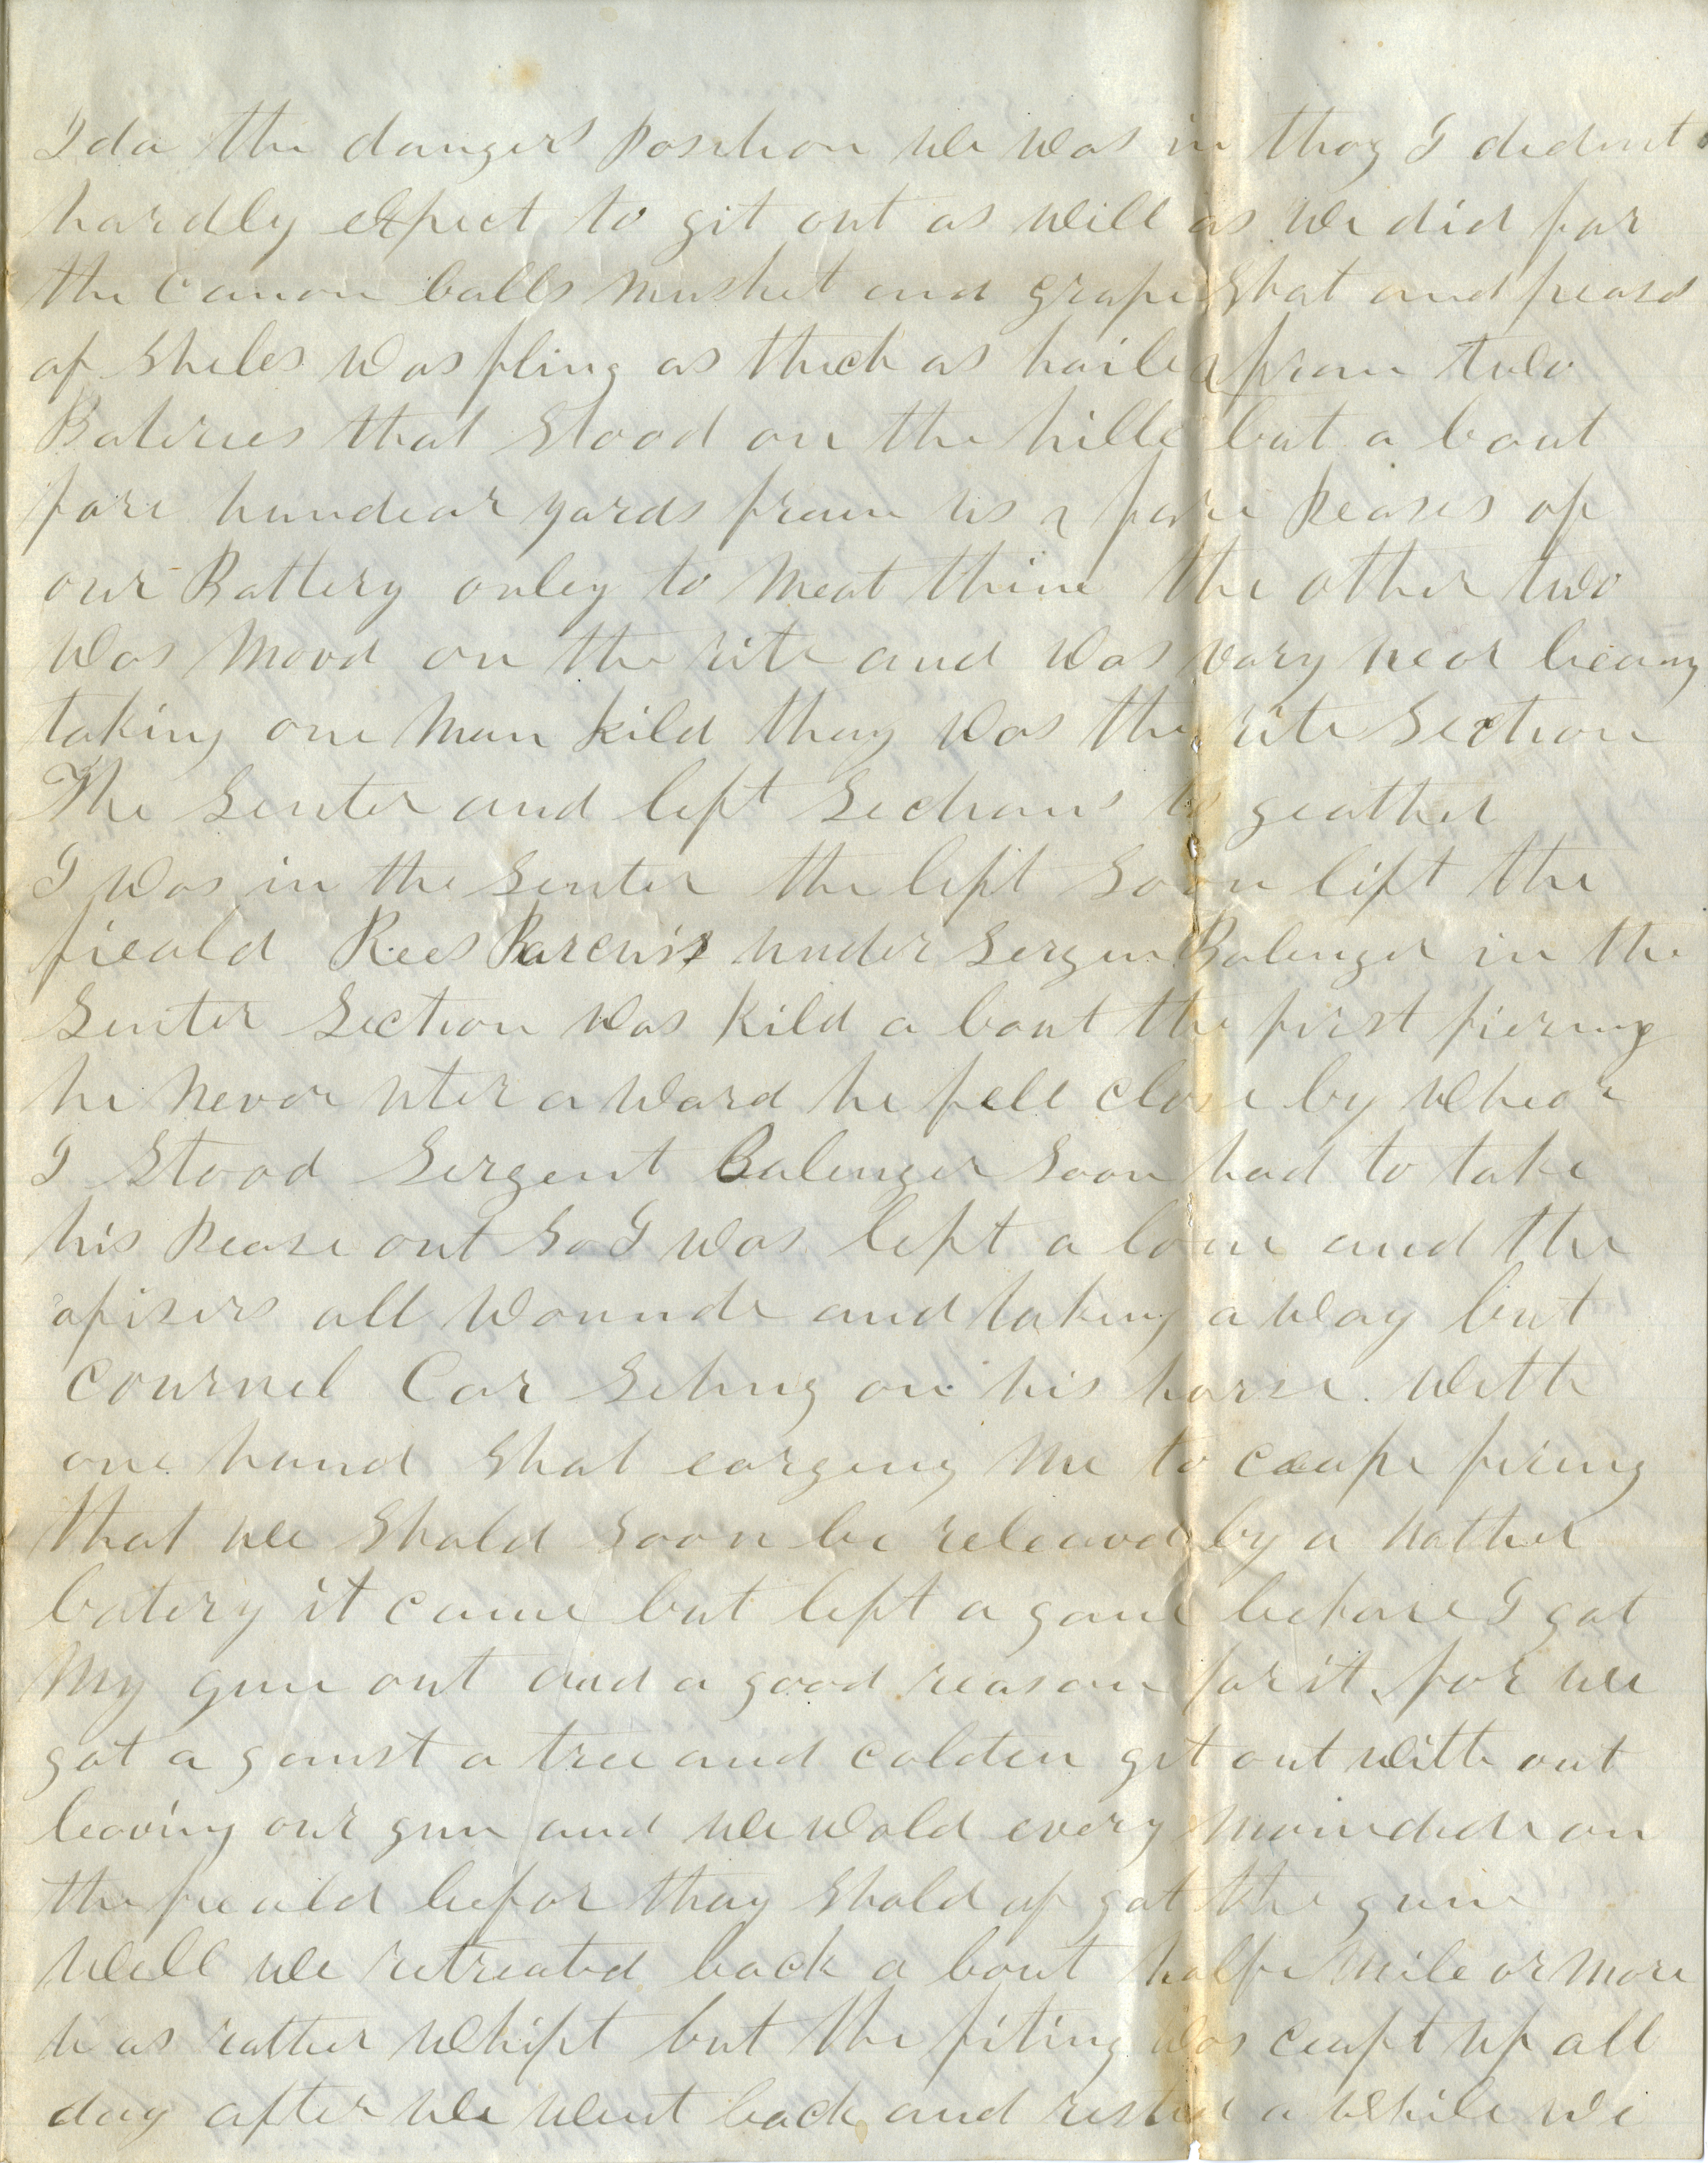 Ida the dangers position we was in thoy I dedent
hardly expect to git out as will as we did for
the canon balls musket and grape Shot and peases
of Sheles was fling as thick as haile from two
Bateries that Stood on the hille but a bout
fore hundear yards from us & fore peases of
our Battery onley to meat thim the other two
was moovd on the rite and was vary near beaing
taking one man kild thay was the rite Section
The Senter and left Sections to geather
I was in the Senter the left Soon lift the
fieald Rees under Sergen Balenger in the
Senter Section was kild a bout the first fiering
he never uter a ward he fell close by whear
I Stood Sergent Balenger Soon had to take
his pease out So I was left a lone and the
ofisers all wounde and taking a way but
cournel Car Seting on his horse with
one hand Shot eorgeng me to ceape firing
that we Shold Soon be releaved by a nather
batery it came but left a gane before I got
my gun out and a good reason for it for we
got a gainst a tree and colden git out with out
leaving our gun and we wold every man dide on
the fieald befor thay Shold of got the gun
well we retreated back a bout halfe mile or more
was rather whipt but the fiting was ceapt up all
day after we went back and rested a while we